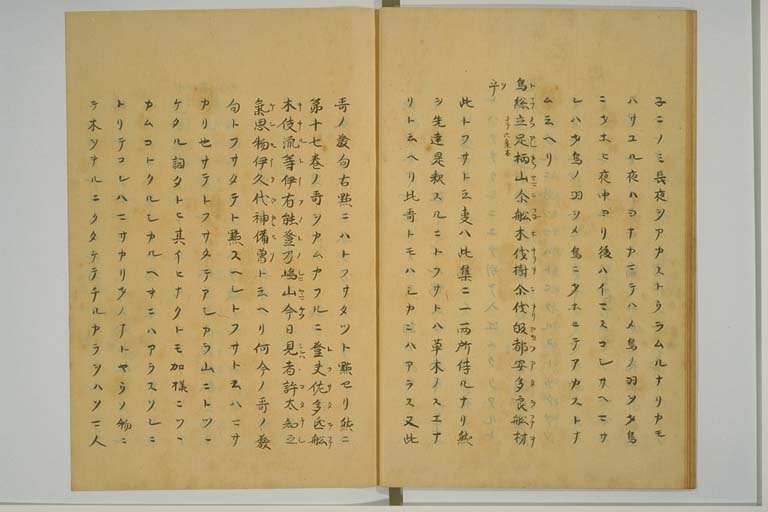 子ニノミ長夜シアカストラムルナリカモ
ハサユル夜ハコナカニテハメ鳥ノ羽シタ鳥
ニタホヒ夜中ヨリ後ハイマスコシサヘニサ
レハタ鳥ノ羽シメ鳥ニタホヒテアカストナ
ム云ヘリ
鳥総立足柄山尒船木伐樹尒伐皈都安多良船材
乎
此トフサト云事ハ此集ニ一両所侍ルナリ然
シ先達是釈スルニトフサトハ草木ノスエナ
リト云ヘリ此哥トモハシカニハアラス又此
哥ノ發句古點ニハトフサタツト點セリ然ニ
第十七巻ノ哥シカムカフルニ登夫佐多氐船
木伎流等伊有能登乃嶋山今日見者許太知之
氣思物伊久代神備曽ト云ヘリ何今ノ哥ノ發
句トフサタテト點スヘシトフサト云ハニサ
カリ也サテトフサタテアシカラ山ニトツヽ
ケタル詞タトヒ其イヒナクトモ加様ニツヽ
カムコトクルシカルヘキニハアラスソレニ
トリテコレハニサカリタノナトヤウノ物ニ
テ木シナルニクタケテチルカラシハソニ人